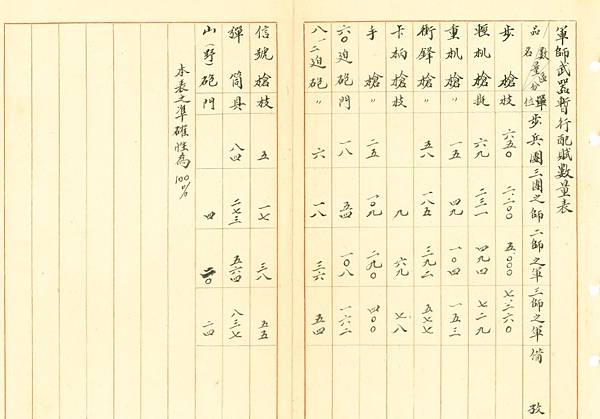 軍師武器暫行配賦數量表
品名 數量 區分 單位 步兵團 三團之師 二師之軍 三師之軍 備考
步槍 枝 六五〇 二.二〇〇 五.〇〇〇 七.二六〇
輕机槍 挺 六九 二三一 四九四 七二九
重机槍 〃 一五 四九 一〇四 一五三
衝鋒槍 〃 五八 一八五 三九二 五七七
卡柄槍 枝 九 六九 七八
手槍 〃 二五 一〇九 二九〇 四〇〇
六〇迫砲 門 一八 五四 一〇八 一六二
八二迫砲 〃 六 一八 三六 五四
信號槍 枝 五 一七 三八 五五
彈筒 具 八四 二七三 五六四 八三七
山(野)砲 門 四 二〇 二四
本表之準確性為100%